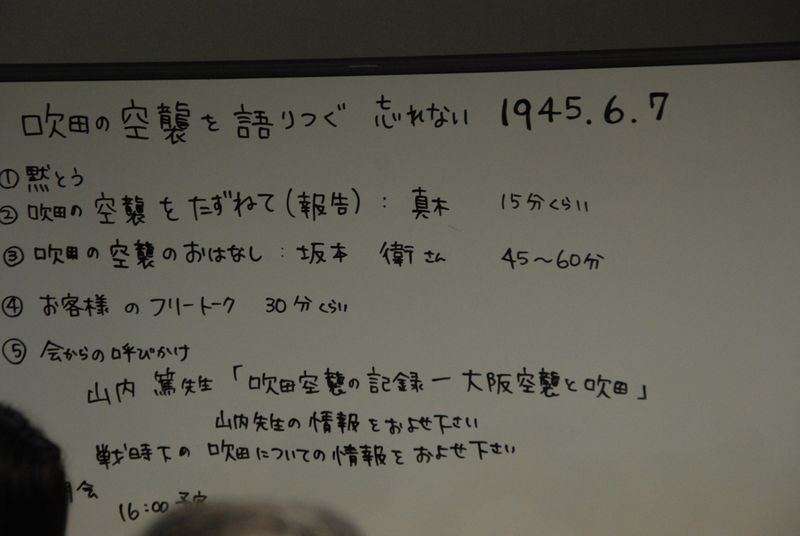 吹田の空襲を語りつぐ 忘れない 1945.6.7
①黙とう
②吹田の空襲をたずねて(報告): 真木 15分くらい
③吹田の空襲のおはなし:坂本 衛さん 45～60分
④お客様のフリートーク 30分くらい
⑤会からの呼びかけ
山内 篤先生「吹田空襲の記録ー大阪空襲と吹田」
山内先生の情報をおよせ下さい
戦時下の吹田についての情報をおよせ下さい
会
16:00予定